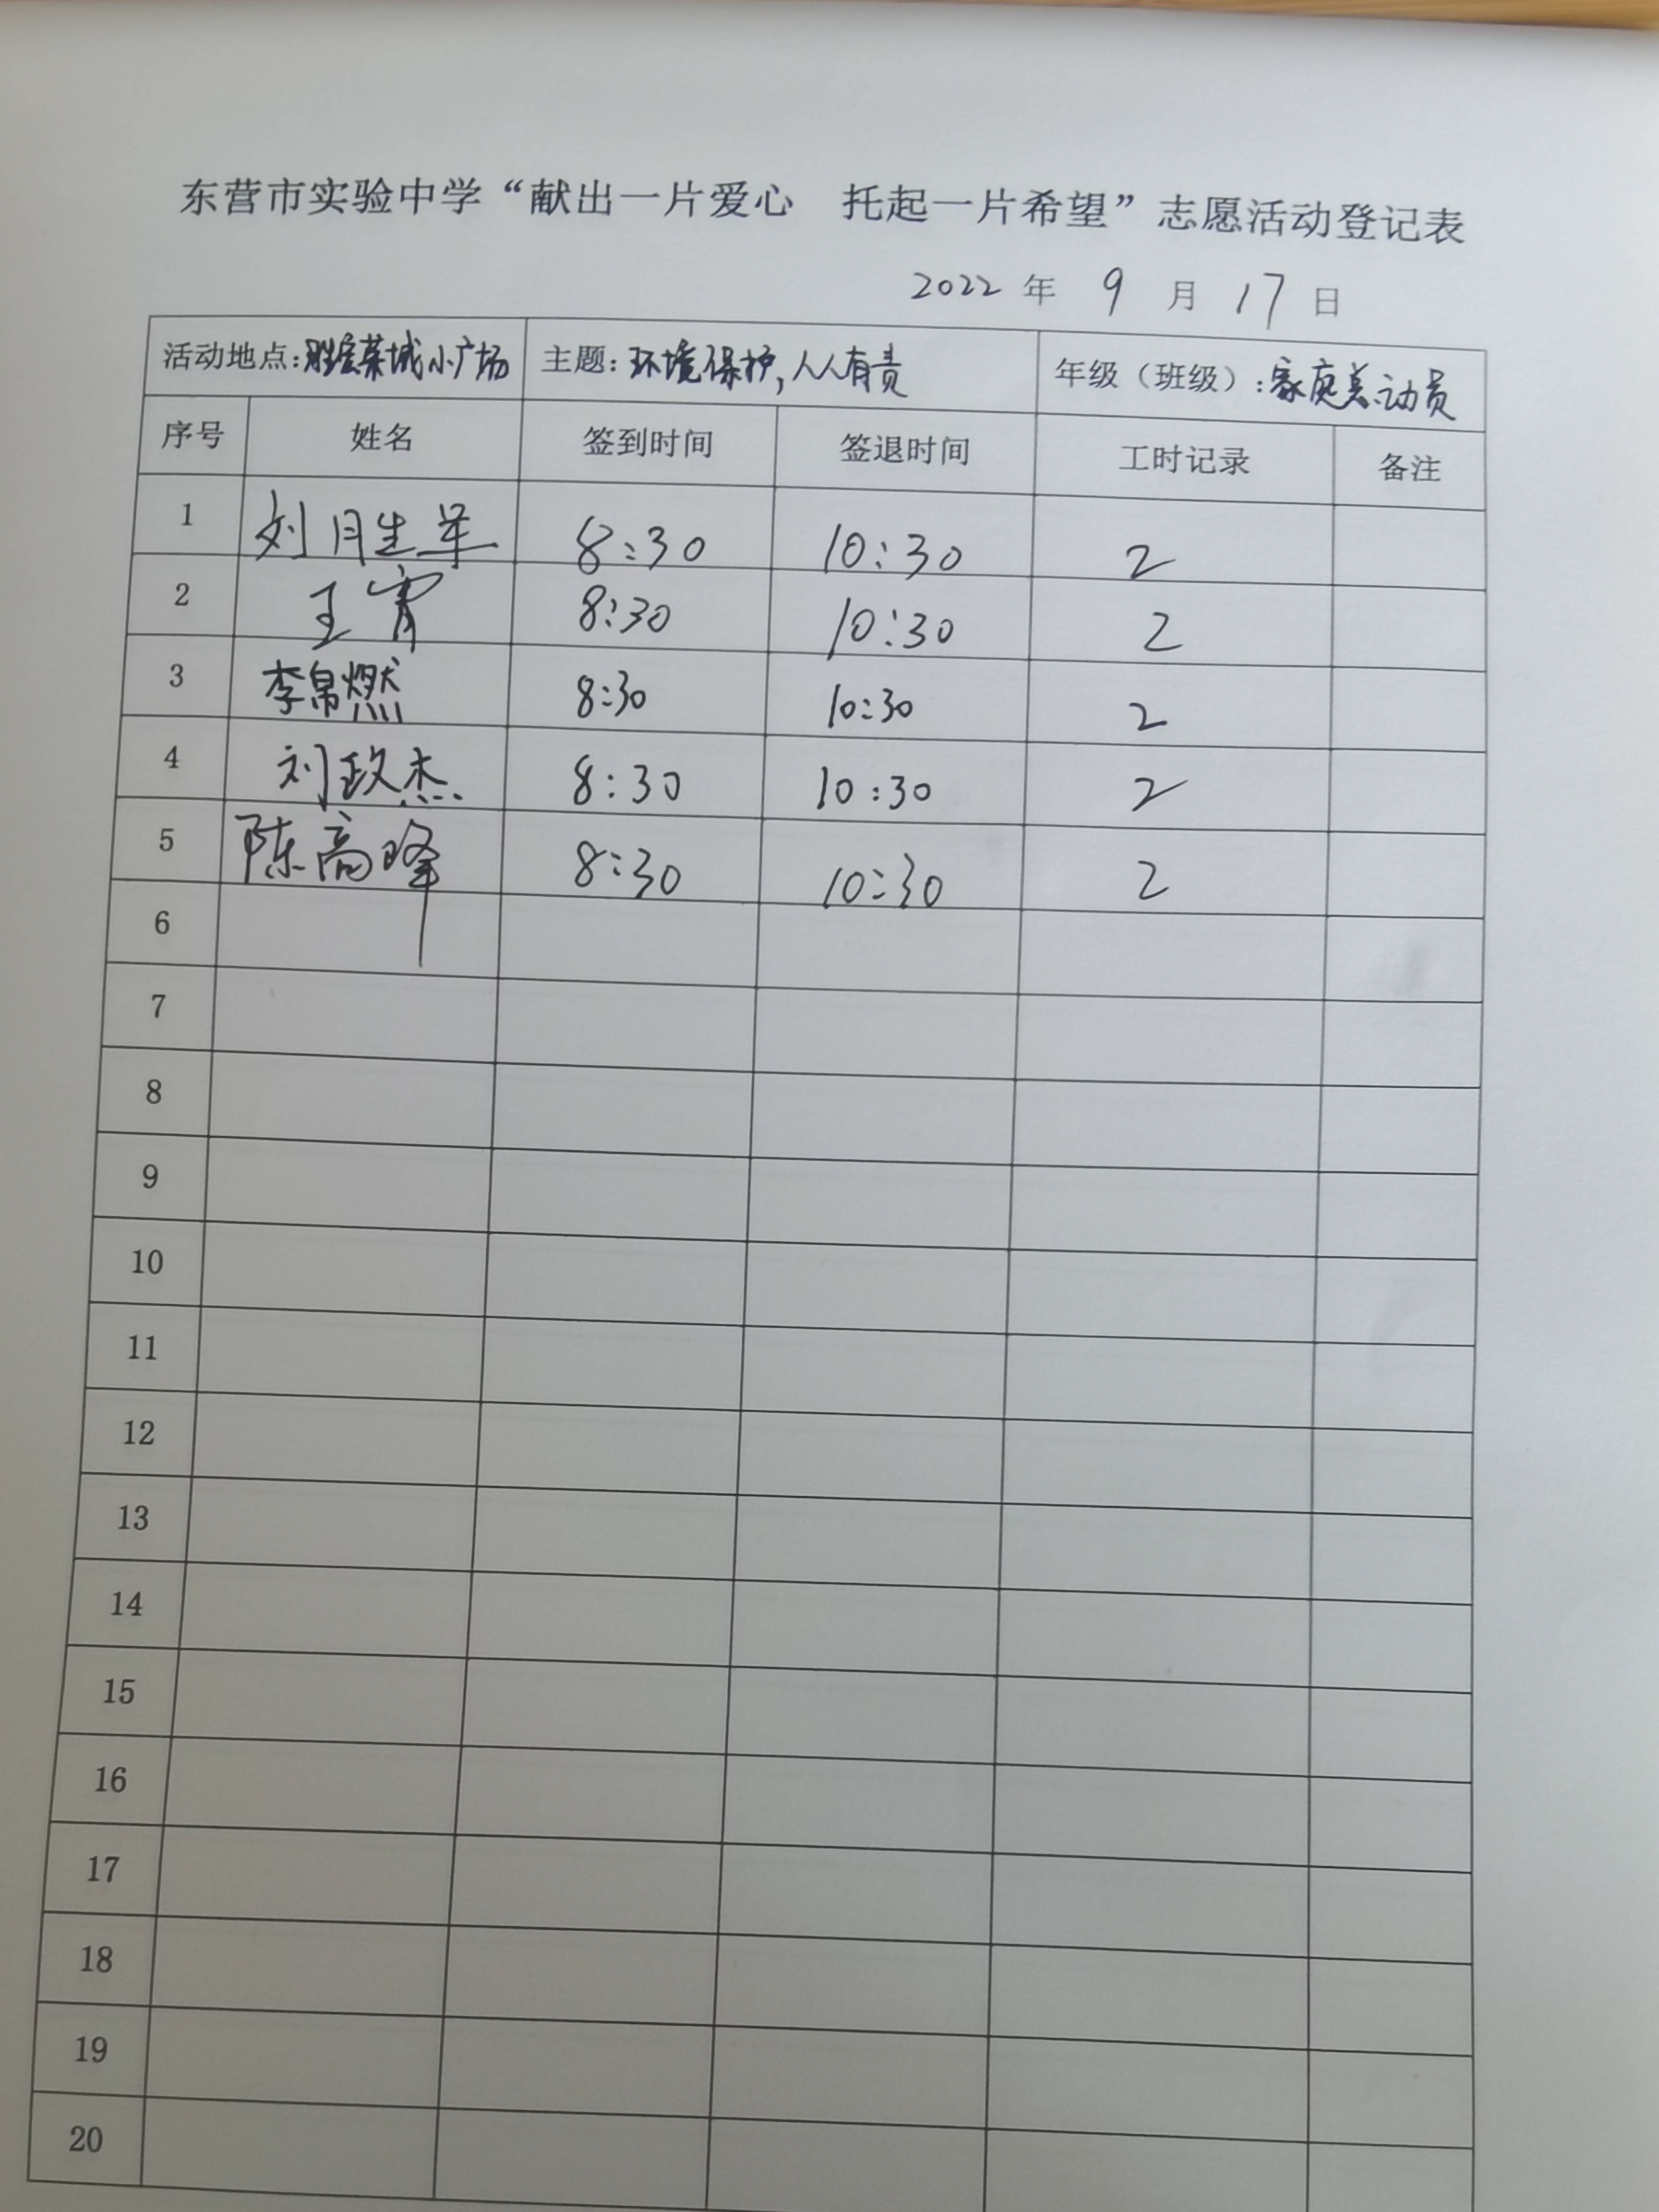 东营市实验中学“献出一片爱心　托起一片希望”志愿活动登记表
2022 年 9 月 17 日
活动地点：胜宏荣城小广场 主题：环境保护，人人有责 年级（班级）：家庭总动员
序号 姓名 签到时间 签退时间 工时记录 备注
1 刘胜军 8:30 10:30 2
2 王宵 8:30 10:30 2
3 李帛燃 8:30 10:30 2
4 刘玫杰 8:30 10:30 2
5 陈高峰 8:30 10:30 2
6
7
8
9
10
11
12
13
14
15
16
17
18
19
20